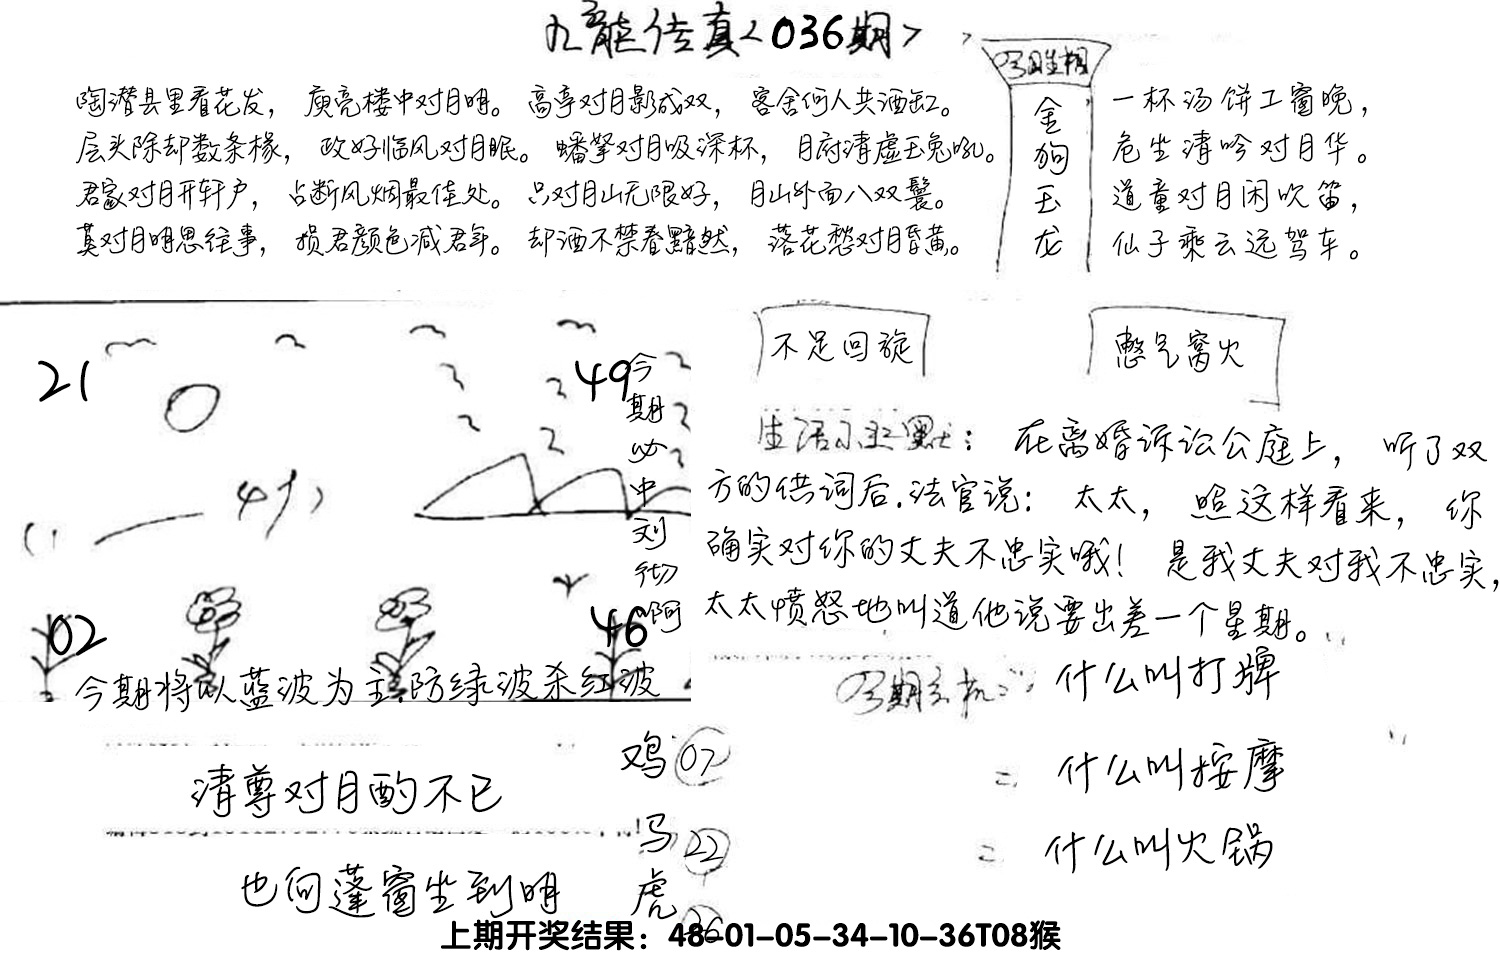 九龙传真<036期>
陶潜县里看花发，庾亮楼中对月明。高亭对月影成双，客舍何人共酒缸。
层头除却数条椽，政好临风对月眠。蟠拏对月吸深杯，月府清虚玉兔吼。
君家对月开轩户，占断风烟最佳处。只对月山无限好，月山外面八双鬟。
莫对月明思往事，损君颜色减君年。却酒不禁春黯然，落花愁对月昏黄。
金
狗
玉
龙
一杯汤饼工窗晚，
危坐清吟对月华。
道童对月闲吹笛，
仙子乘云远驾车。
21
49
02
46
今期必中刘彻啊
今期将以蓝波为主防绿波杀红波
不足回旋
憋气窝火
在离婚诉讼公庭上，听了双
方的供词后.法官说：太太，照这样看来，你
确实对你的丈夫不忠实哦！是我丈夫对我不忠实，
太太愤怒地叫道他说要出差一个星期。
什么叫打牌
什么叫按摩
什么叫火锅
清尊对月酌不已
也向蓬窗坐到明
鸡 07
马 22
虎
上期开奖结果：48-01-05-34-10-36T08猴